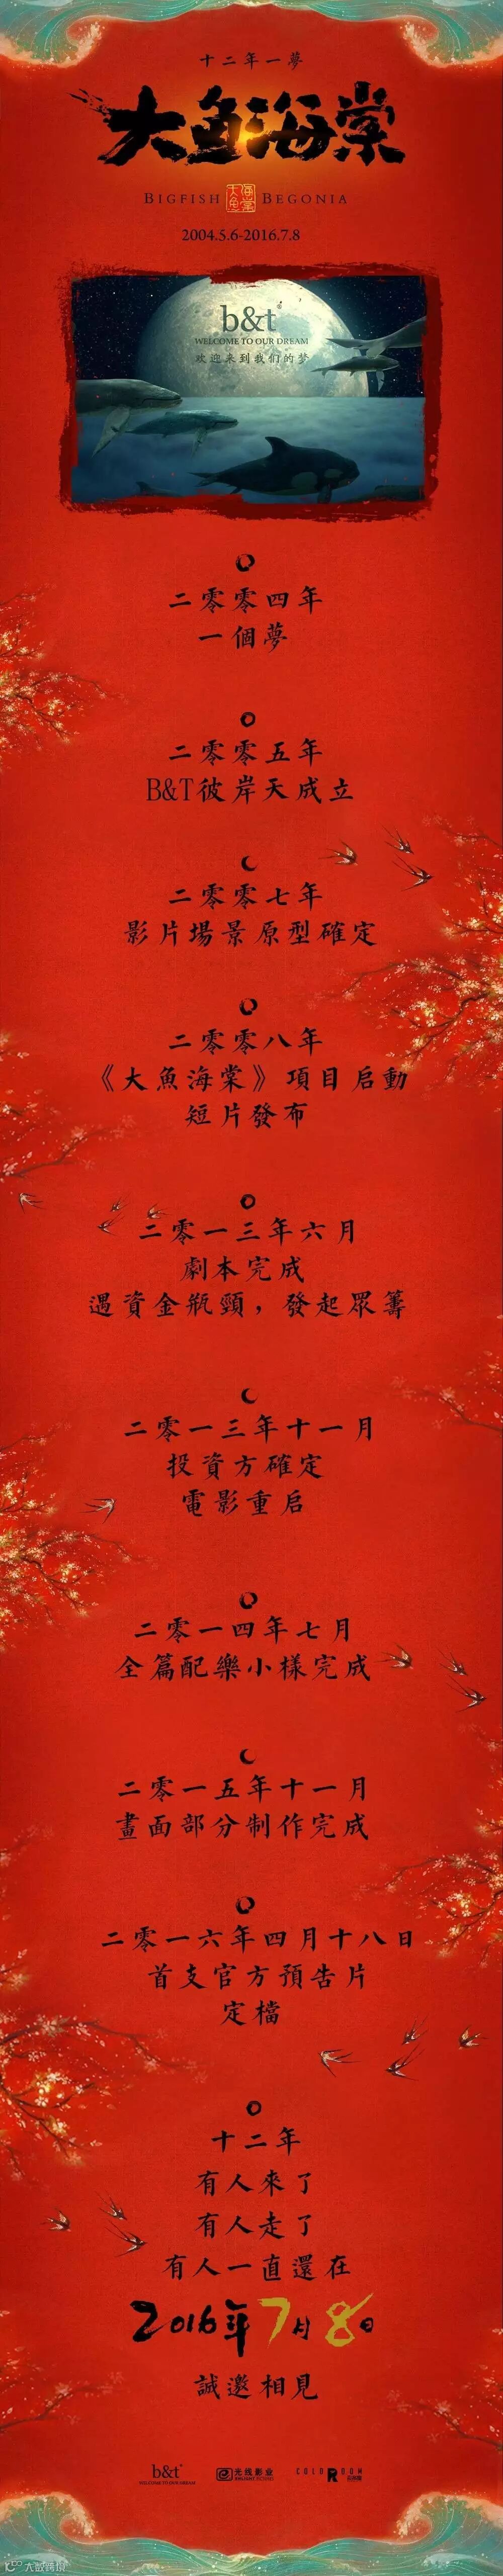 十二年一夢
大鱼海棠
BIGFISH 大魚海棠 BEGONIA
2004.5.6-2016.7.8
b&t
WELCOME TO OUR DREAM
欢迎来到我们的梦
二零零四年
一個夢
二零零五年
B&T彼岸天成立
二零零七年
影片場景原型確定
二零零八年
《大魚海棠》項目启動
短片發布
二零一三年六月
劇本完成
遇資金瓶頸，發起眾籌
二零一三年十一月
投資方確定
電影重启
二零一四年七月
全篇配樂小樣完成
二零一五年十一月
畫面部分制作完成
二零一六年四月十八日
首支官方預告片
定檔
十二年
有人來了
有人走了
有人一直還在
2016年7月8日
誠邀相見
b&t
WELCOME TO OUR DREAM
光线影业
COLOROOM
大数跨境